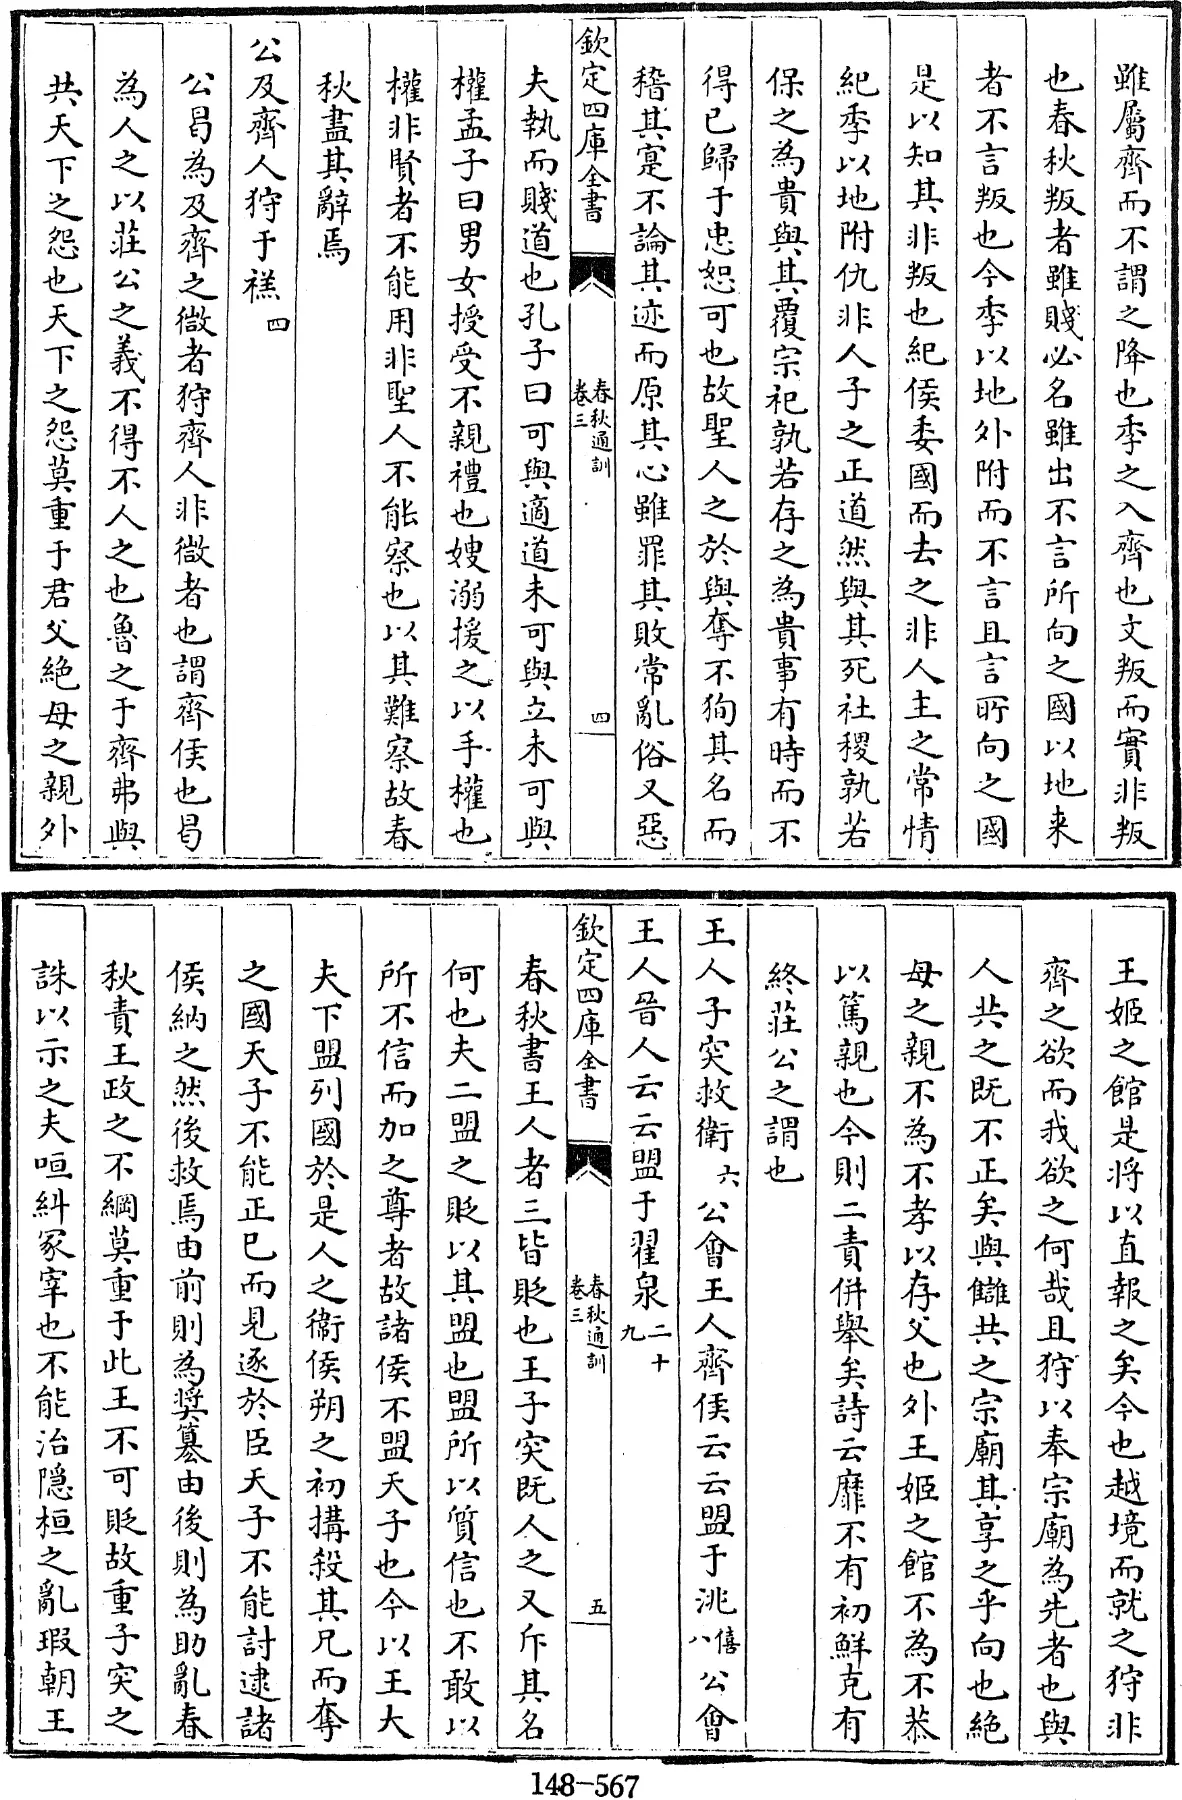 雖屬齊而不謂之降也季之入齊也文叛而實非叛
也春秋叛者雖賤必名雖出不言所向之國以地来
者不言叛也今季以地外附而不言且言所向之國
是以知其非叛也紀侯委國而去之非人主之常情
紀季以地附仇非人子之正道然與其死社稷孰若
保之為貴與其覆宗祀孰若存之為貴事有時而不
得已歸于忠恕可也故聖人之於與奪不狥其名而
稽其寔不論其迹而原其心雖罪其敗常亂俗又惡
欽定四庫全書
春秋通訓
卷三
四
夫執而賤道也孔子曰可與適道未可與立未可與
權孟子曰男女授受不親禮也嫂溺援之以手權也
權非賢者不能用非聖人不能察也以其難察故春
秋盡其辭焉
公及齊人狩于禚四
公曷為及齊之微者狩齊人非微者也謂齊侯也曷
為人之以莊公之義不得不人之也魯之于齊弗與
共天下之怨也天下之怨莫重于君父絶母之親外
王姬之館是将以直報之矣今也越境而就之狩非
齊之欲而我欲之何哉且狩以奉宗廟為先者也與
人共之既不正矣與讎共之宗廟其享之乎向也絶
母之親不為不孝以存父也外王姬之館不為不恭
以篤親也今則二責併舉矣詩云靡不有初鮮克有
終莊公之謂也
王人子突救衛六 公會王人齊侯云云盟于洮僖八 公會
王人晉人云云盟于翟泉二十九
欽定四庫全書
春秋通訓
卷三
五
春秋書王人者三皆貶也王子突既人之又斥其名
何也夫二盟之貶以其盟也盟所以質信也不敢以
所不信而加之尊者故諸侯不盟天子也今以王大
夫下盟列國於是人之衛侯朔之初搆殺其兄而奪
之國天子不能正已而見逐於臣天子不能討逮諸
侯納之然後救焉由前則為奨簒由後則為助亂春
秋責王政之不綱莫重于此王不可貶故重子突之
誅以示之夫咺糾冢宰也不能治隠桓之亂瑕朝王
148-567